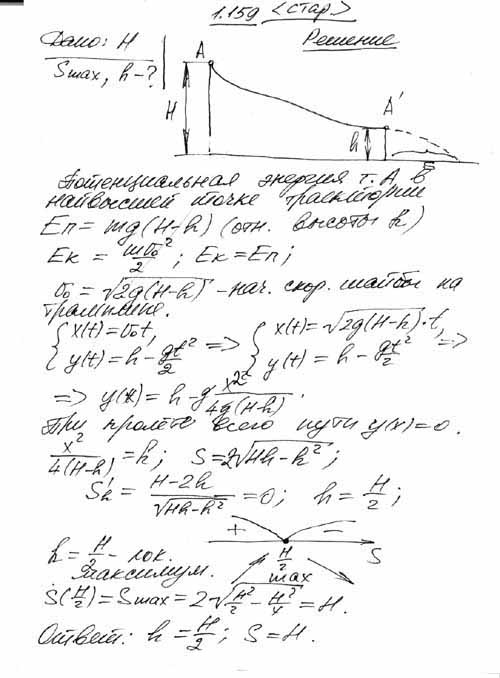 1.159 <стар>
Дано: H
Smax, h-?
Решение
A
H
A'
h
Потенциальная энергия т. A в
наивысшей точке траектории
Eп = mg(H-h) (отн. высоты h)
Eк = mv₀²/2; Eк = Eп;
v₀ = √2g(H-h) - нач. скор. шайбы на
трамплине.
{x(t)=v₀t, y(t)=h-gt²/2 => {x(t)=√2g(H-h)·t, y(t)=h-gt²/2 =>
=> y(x) = h-g x²/4g(H-h).
При пролёте всего пути y(x)=0.
x²/4(H-h) = h; S=2√Hh-h²;
S'h = H-2h/√Hh-h² = 0; h = H/2;
+ -
H/2 S
max
h = H/2 - лок.
максимум.
S(H/2) = Smax = 2√H²/2 - H²/4 = H.
Ответ: h = H/2; S = H.